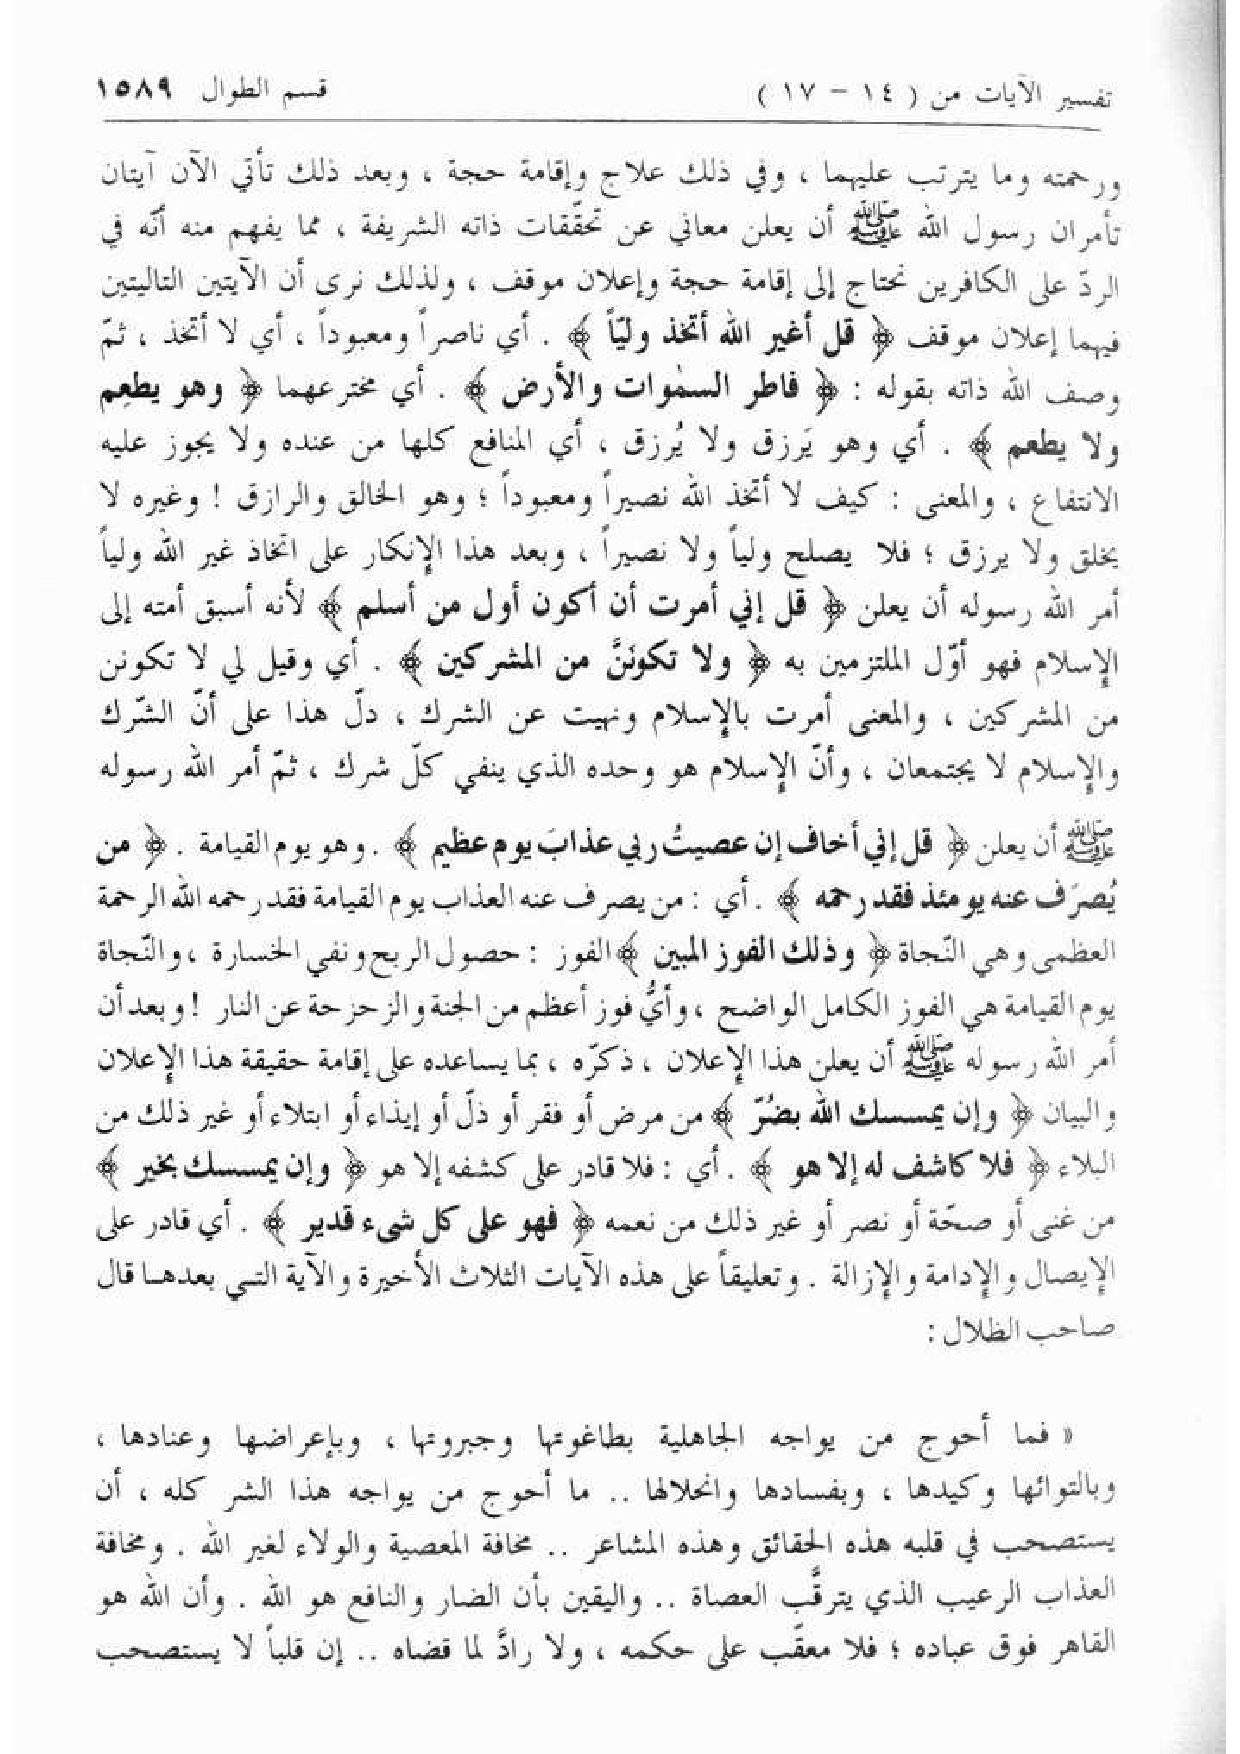 تفسير الآيات من ( ١٤ - ١٧ ) قسم الطوال ١٥٨٩
ورحمته وما يترتب عليهما ، وفي ذلك علاج وإقامة حجة ، وبعد ذلك تأتي الآن آيتان
تأمران رسول الله ﷺ أن يعلن معاني عن تحقّقات ذاته الشريفة ، مما يفهم منه أنّه في
الردّ على الكافرين نحتاج إلى إقامة حجة وإعلان موقف ، ولذلك نرى أن الآيتين التاليتين
فيهما إعلان موقف ﴿ قل أغير الله أتخذ وليّاً ﴾ . أي ناصراً ومعبوداً ، أي لا أتخذ ، ثمّ
وصف الله ذاته بقوله : ﴿ فاطر السمٰوات والأرض ﴾ . أي مخترعهما ﴿ وهو يطعِم
ولا يطعم ﴾ . أي وهو يَرزق ولا يُرزق ، أي المنافع كلها من عنده ولا يجوز عليه
الانتفاع ، والمعنى : كيف لا أتخذ الله نصيراً ومعبوداً ؛ وهو الخالق والرازق ! وغيره لا
يخلق ولا يرزق ؛ فلا يصلح ولياً ولا نصيراً ، وبعد هذا الإنكار على اتخاذ غير الله ولياً
أمر الله رسوله أن يعلن ﴿ قل إني أمرت أن أكون أول من أسلم ﴾ لأنه أسبق أمته إلى
الإسلام فهو أوّل الملتزمين به ﴿ ولا تكونَنَّ من المشركين ﴾ . أي وقيل لي لا تكونن
من المشركين ، والمعنى أمرت بالإسلام ونهيت عن الشرك ، دلّ هذا على أنّ الشّرك
والإسلام لا يجتمعان ، وأنّ الإسلام هو وحده الذي ينفي كلّ شرك ، ثمّ أمر الله رسوله
ﷺ أن يعلن ﴿ قل إني أخاف إن عصيتُ ربي عذابَ يوم عظيم ﴾ . وهو يوم القيامة . ﴿ من
يُصرَف عنه يومئذ فقد رحمه ﴾ . أي : من يصرف عنه العذاب يوم القيامة فقد رحمه الله الرحمة
العظمى وهي النّجاة ﴿ وذلك الفوز المبين ﴾ الفوز : حصول الربح ونفي الخسارة ، والنّجاة
يوم القيامة هي الفوز الكامل الواضح ، وأيُّ فوز أعظم من الجنة والزحزحة عن النار ! وبعد أن
أمر الله رسوله ﷺ أن يعلن هذا الإعلان ، ذكّره ، بما يساعده على إقامة حقيقة هذا الإعلان
والبيان ﴿ وإن يمسسك الله بضُرّ ﴾ من مرض أو فقر أو ذلّ أو إيذاء أو ابتلاء أو غير ذلك من
البلاء ﴿ فلا كاشف له إلا هو ﴾ . أي : فلا قادر على كشفه إلا هو ﴿ وإن يمسسك بخير ﴾
من غنى أو صحّة أو نصر أو غير ذلك من نعمه ﴿ فهو على كل شيء قدير ﴾ . أي قادر على
الإيصال والإدامة والإزالة . وتعليقاً على هذه الآيات الثلاث الأخيرة والآية التي بعدها قال
صاحب الظلال :
« فما أحوج من يواجه الجاهلية بطاغوتها وجبروتها ، وبإعراضها وعنادها ،
وبالتوائها وكيدها ، وبفسادها وانحلالها .. ما أحوج من يواجه هذا الشر كله ، أن
يستصحب في قلبه هذه الحقائق وهذه المشاعر .. مخافة المعصية والولاء لغير الله . ومخافة
العذاب الرعيب الذي يترقَّب العصاة .. واليقين بأن الضار والنافع هو الله . وأن الله هو
القاهر فوق عباده ؛ فلا معقّب على حكمه ، ولا رادَّ لما قضاه .. إن قلباً لا يستصحب